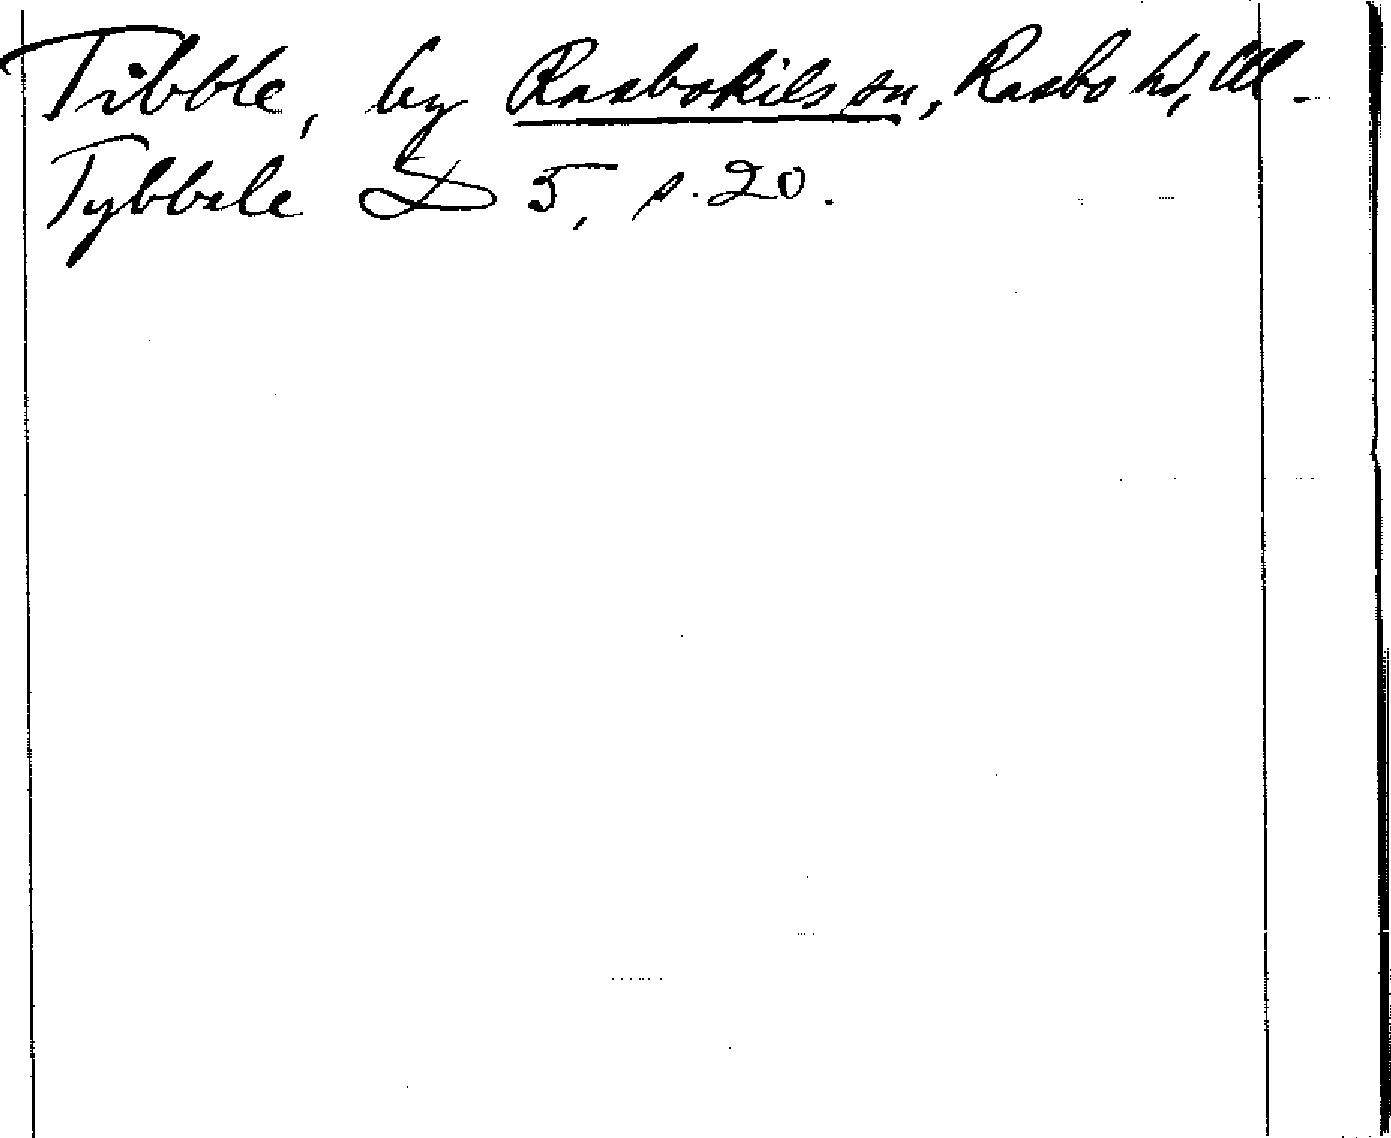 Tibble, by Rasbokils sn, Rasbo hd, Ul.
Tybbele D 5, s. 20.